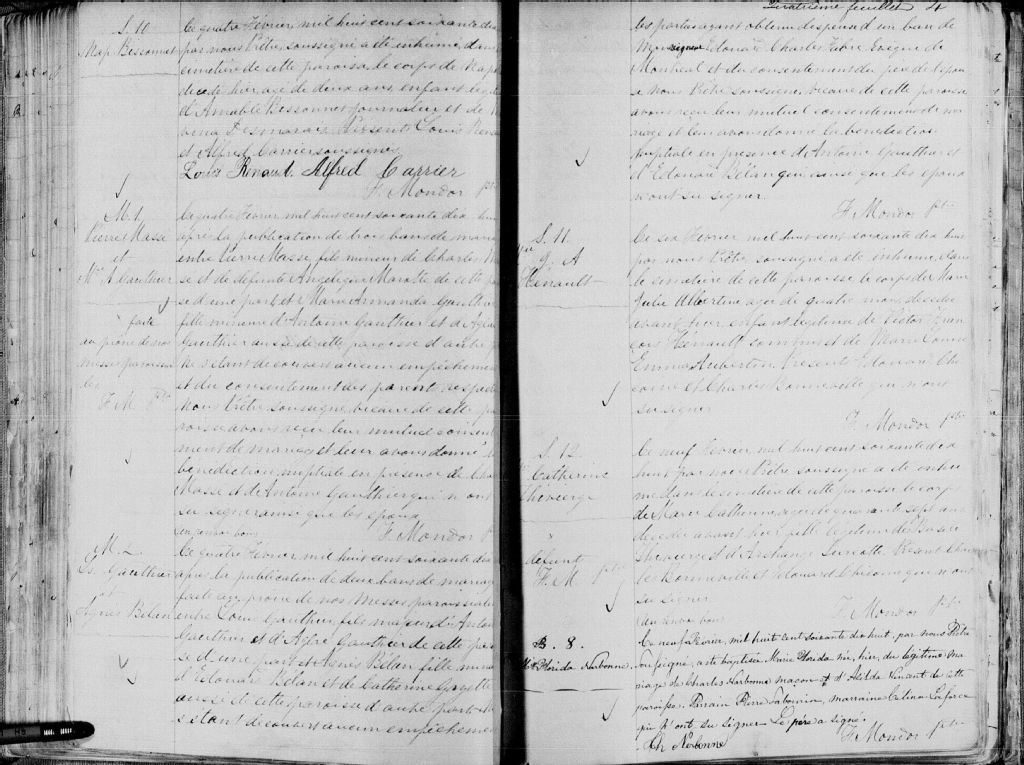 S. 10
Map. Bessonnet
Le quatre Février mil huit cent soixante dix
par nous Prêtre soussigné a été inhumé dans
cimetière de cette paroisse le corps de Nap
décédé hier age de deux ans enfant
d'Amable Bessonnet journalier et de
Desmarais. Présent Louis Rena
et Alfred Carrier soussignés
Louis Renaud Alfred Carrier
F. Mondor ptre
M. 1.
Pierre Massé
et
Mie A. Gauthier
faite
au prône de nos
messes paroissia
les
F. M. Ptre
Le quatre Février mil huit cent soixante dix hui
après la publication de trois bans de maria
entre Pierre Masse, fils mineur de Charles M
se et de défunte Angélique Marotte de cette pa
se d'une part et Marie Armanda Gauthier
fille mineure d'Antoine Gauthier et d'
Gauthier aussi de cette paroisse d'autre p
ne s'étant découvert aucun empêchemen
et du consentement des parents respecti
Nous Prêtre soussigné vicaire de cette pa
roisse avons reçu leur mutuel consente
ment de mariage et leur avons donné la
bénédiction nuptiale en présence de Char
Masse et de Antoine Gauthier qui n'ont
su signer ainsi que les époux
F. Mondor p
M. 2.
Ls. Gauthier
et
Agnès Bélan
Le quatre Février mil huit cent soixante dix
après la publication de deux bans de mariag
faite au prône de nos Messes paroissiales
entre Louis Gauthier fils majeur d'Antoi
Gauthier et d' Gauthier de cette paroi
se d'une part et Agnès Bélan fille mine
d'Edouard Bélan et de Catherine Goyette
aussi de cette paroisse d'autre part ne
s'étant découvert aucun empêchement
Quatrième feuillet 4
les parties ayant obtenu dispense d'un ban de
Monseigneur Edouard Charles Fabre Evêque de
Montréal et du consentement du père de l'épou
se Nous Prêtre soussigné, vicaire de cette paroisse
avons reçu leur mutuel consentement de ma
riage et leur avons donné la bénédiction
nuptiale en présence d'Antoine Gauthier et
d'Edouard Bélan qui ainsi que les époux
n'ont su signer.
F. Mondor Ptre
S. 11.
J. A
Hénault
Le six Février mil huit cent soixante dix huit
par nous Prêtre soussigné a été inhumé dans
le cimetière de cette paroisse le corps de Marie
Julie Albertine agée de quatre mois décédée
avant hier enfant légitime de Victor Fran
çois Hénault commis et de Marie Louise
Emma Aubertin Présent Edouard
et Charles Bonneville qui n'ont
su signer
F. Mondor ptre
S. 12.
Catherine
Chevierge
défunt
F. M. ptre
Le neuf Février mil huit cent soixante dix
huit par nous Prêtre soussigné a été inhu
mé dans le cimetière de cette paroisse le corps
de Marie Catherine agée de quarante sept ans
décédée avant hier fille légitime de
Chevierge et d'Archange Présent Char
les Bonneville et Edouard qui n'ont
su signer
F. Mondor Ptre
B. 8.
Mie Florida Narbonne.
Le neuf Février, mil huit cent soixante dix huit, par nous Prêtre
soussigné, a été baptisée Marie Florida née, hier, du légitime ma
riage de Charles Narbonne maçon et d'Alilda Vincent de cette
paroisse. Parrain Pierre Labonine, marraine Celina Laforce
qui n'ont su signer Le père a signé.
Ch Narbonne
F. Mondor Ptre